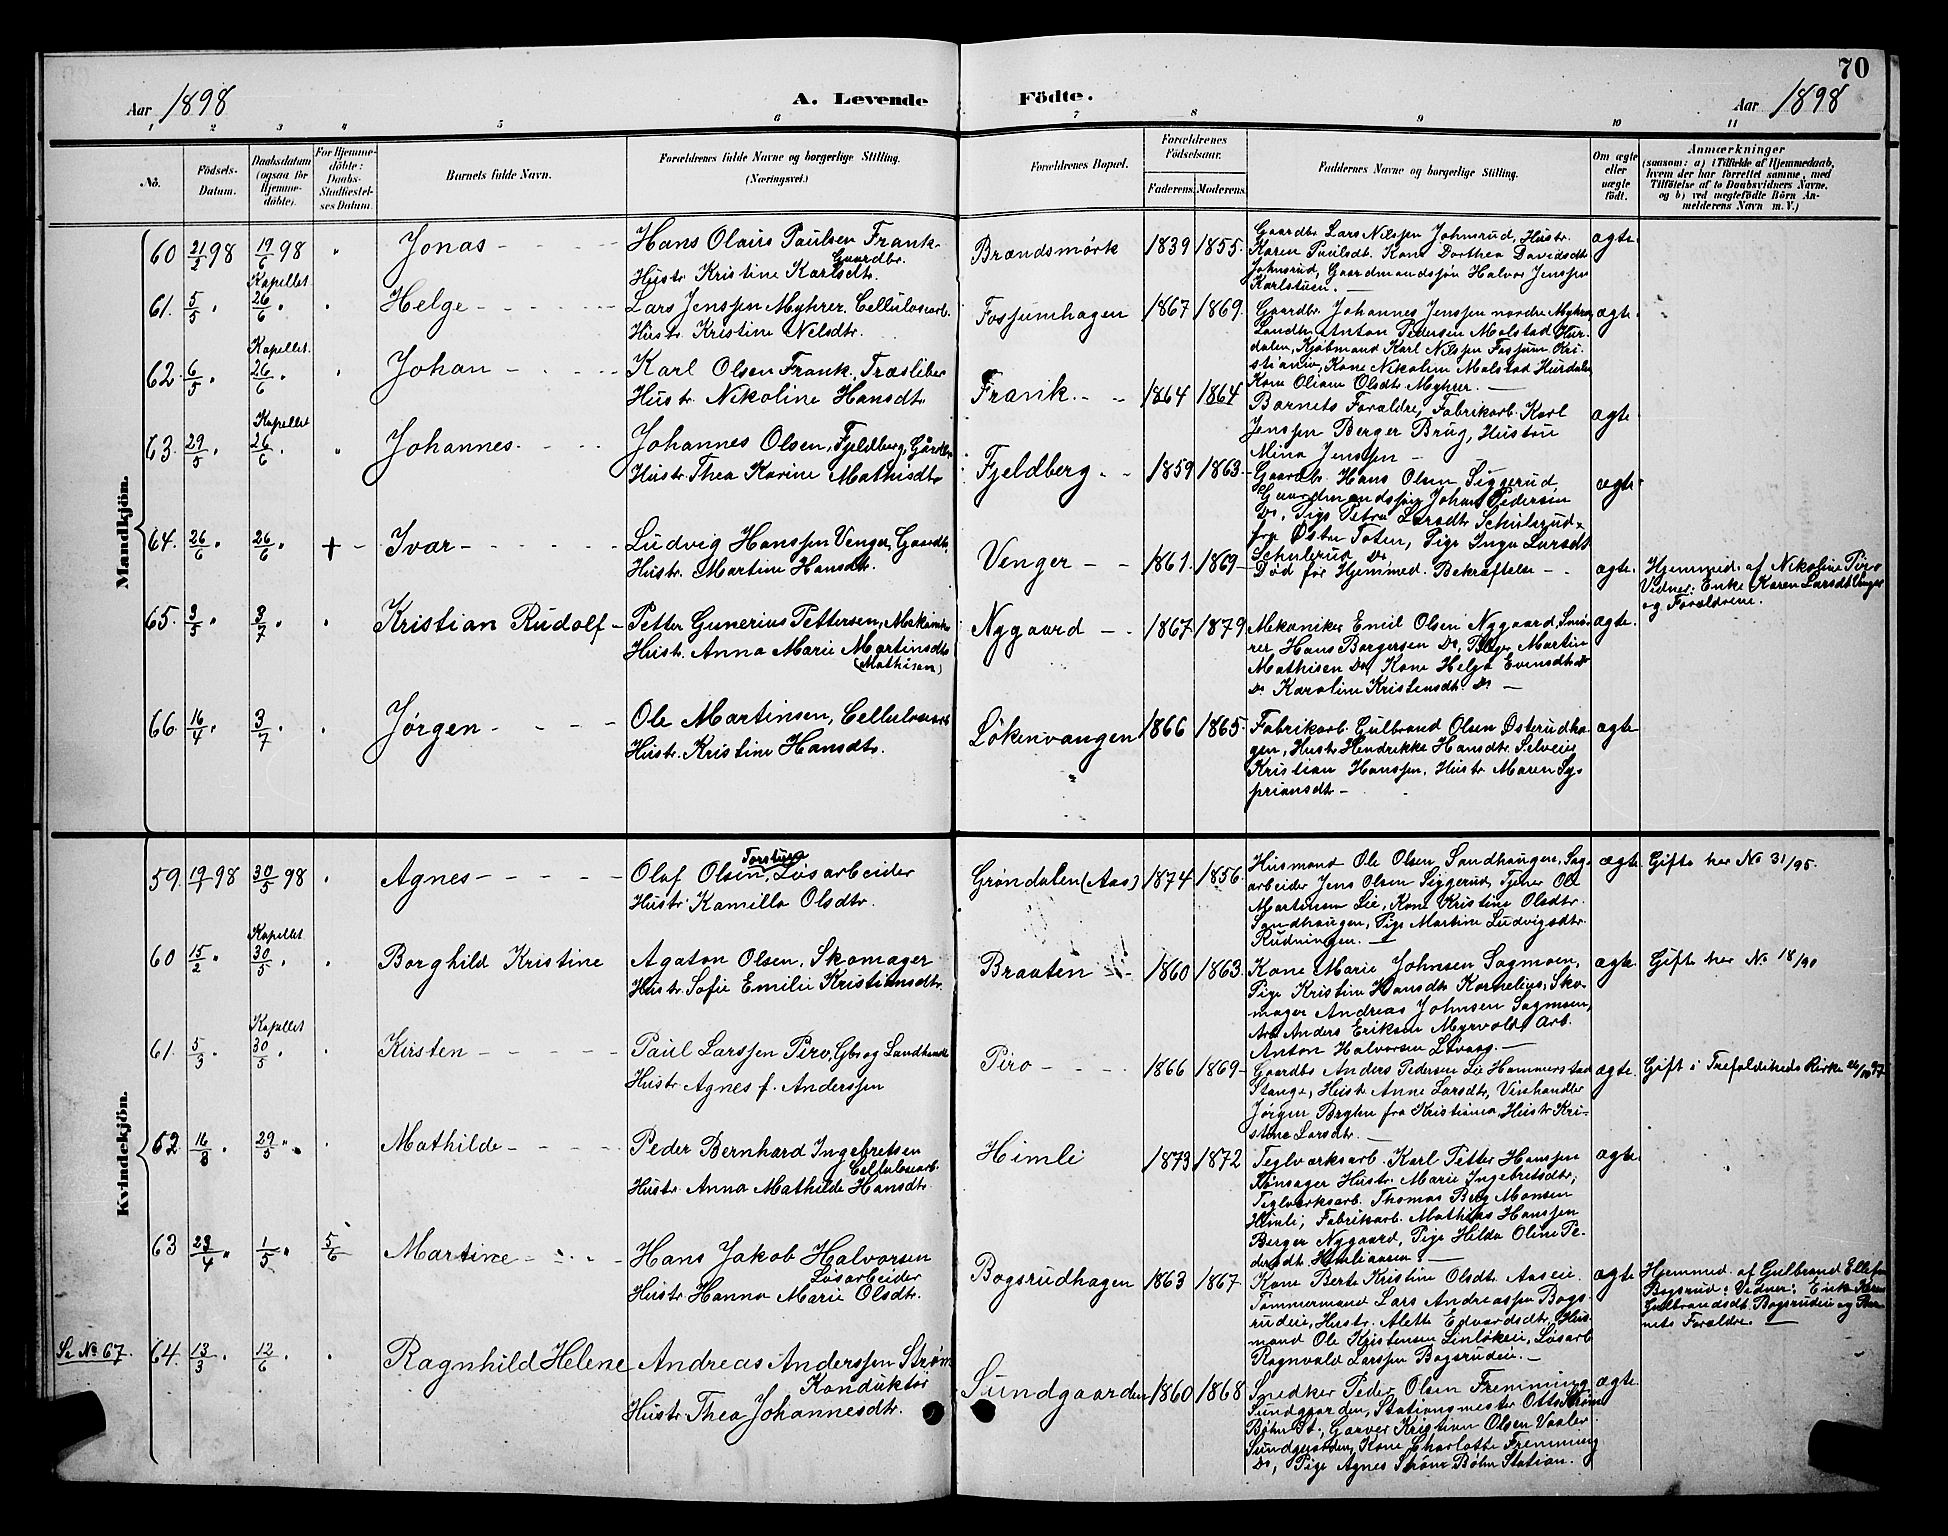 70
Aar 1898
A. Levende Födte.
Aar 1898
1 2 3 4 5 6 7 8 9 10 11
No.
Födsels-
Datum.
Daabsdatum
(ogsaa for
Hjemme-
döbte).
For Hjemme-
döbte:
Daabs-
Stadfæstel-
ses Datum.
Barnets fulde Navn.
Forældrenes fulde Navne og borgerlige Stilling.
(Næringsvei.)
Forældrenes Bopæl.
Forældrenes
Födselsaar.
Faderens. Moderens.
Faddernes Navne og borgerlige Stilling.
Om ægte
eller
uægte
födt.
Anmærkninger
(saasom: a) i Tilfælde af Hjemmedaab,
hvem der har forrettet samme, med
Tilföielse af to Daabsvidners Navne,
og b) ved uægtefödte Börn An-
melderens Navn m. V.)
Mandkjön.
60 21/2 98 19/6 98 " Jonas
Hans Olairs Paulsen Frank
Gaardbr.
Hustr. Kristine Karlsdtr.
Brændsmörk 1839 1855
Gaardbr. Lars Nilssen Johnsrud, Hustr.
Karen Paulsdt. Kone Dorthea Davidsdt.
Johnsrud, Gaardmandssøn Halvor Jenssen
Karlstuen.
ægte
61. 5/5 " Kapellet 26/6 " " Helge
Lars Jenssen Myhrer. Cellulosearb.
Hustr. Kristine Nilsdtr.
Fossumhagen 1867 1869
Gaardbr. Johannes Jenssen nordre Myhrer
Landh. Anton Pedersen Molstad Hur-
dalen, Kjøbmand Karl Nilssen Fossum Kri-
stiania, Kone Nikoline Molstad Hurdalen
Kone Oliane Olsdtr Myhrer.
ægte
62 6/5 " Kapellet. 26/6 " " Johan
Karl Olsen Frank. Træsliber
Hustr. Nikoline Hansdtr
Frank 1864 1864
Barnets Forældre, Fabrikarb. Karl
Jenssen Berger Brug, Hustru
Mina Jenssen
ægte
63. 29/5 " Kapellet 26/6 " " Johannes
Johannes Olsen, Fjeldberg,
Hustr. Thea Karine Mathisdtr
Fjeldberg 1859 1863
Gaardbr. Hans Olsen Siggerud,
Gaardmandssøn Johan Pedersen
Do, Pige Petra Larsdtr Schulerud
fra Østre Toten, Pige Inga Larsdtr
Schulerud Do
ægte
64. 26/6 " 26/6 " + Ivar
Ludvig Hanssen Venger, Gaardb.
Hustr. Martine Hansdtr.
Venger 1861 1869
Død før Hjemmed. Bekræftelse
ægte.
Hjemmed. af Nikoline Piro
Vidner: Enke Karen Larsdt. Venger
og Forældrene.
65. 3/5 " 3/7 " " Kristian Rudolf
Petter Gunerius Pettersen, Mekaniker
Hustr. Anna Marie Martinsdtr
(Mathisen)
Nygaard 1867 1879
Mekaniker Emil Olsen Nygaard, Smø-
rer Hans Borgersen Do, Pige Martine
Mathisen Do, Kone Helga Evensdtr Do
Do Karoline Kristensdt. Do
ægte.
66. 16/4 " 3/7 " " Jørgen
Ole Martinsen, Cellulosearb
Hustr. Kristine Hansdtr.
Løkenvangen 1866 1865
Fabrikarb. Gulbrand Olsen Østerudha-
gen, Hustr Hendrikke Hansdtr. Selveier
Kristian Hanssen, Hustr Maren Sy-
priansdtr
ægte
Kvindekjön.
59. 19/ 98 30/5 98 " Agnes
Torstue
Olaf Olsen, Løsarbeider
Hustr. Kamilla Olsdtr.
Grøndalen (Aas) 1874 1856
Husmand Ole Olsen Sandhaugen, Sag-
arbeider Jens Olsen Siggerud, Tjener Ole
Martinsen Lie, Kone Kristine Olsdtr.
Sandhaugen, Pige Martine Ludvigsdtr.
Rudningen.
ægte
Gifte her No 31/95.
60 15/2 " Kapellet 30/5 " " Borghild Kristine
Agaton Olsen, Skomager
Hustr. Sofie Emilie Kristiansdtr.
Braaten 1860 1863
Kone Marie Johnsen Sagmoen,
Pige Kristine Hansdtr Kornelius, Sko-
mager Andreas Johnsen Sagmoen,
Arb Anders Eriksen Myrvold, Arb.
Anton Halvorsen
ægte.
Gifte her No 18/90
61. 5/3 " Kapellet 30/5 " " Kirsten
Paul Larssen Piro, Gbr og Landhandl
Hustr. Agnes f. Anderssen
Piro 1866 1869
Gaardbr Anders Pedersen Lie Hommerstad
Stange, Hustr Anne Larsdtr, Vinhandler
Jørgen Bryhn fra Kristiania, Hustr Kri-
stine Larsdtr.
ægte.
Gift i Trefoldigheds Kirke 26/10 97
62 16/3 " 29/5 " " Mathilde
Peder Bernhard Ingebretsen
Cellulosearb.
Hustr. Anna Mathilde Hansdtr
Himli 1873 1872
Teglværksarb. Karl Petter Hanssen
Tønsager Hustr. Marie Ingebretsdtr,
Teglværksarb. Thomas Berg Monsen
Himli, Fabrikarb. Mathias Hanssen
Berger Nygaard, Pige Hilda Oline Pe-
dersdt Himliaasen.
ægte.
63 23/4 " 1/5 " 5/6 Martine
Hans Jakob Halvorsen
Løsarbeider
Hustr. Hanna Marie Olsdtr.
Bogsrudhagen 1863 1867
Kone Berte Kristine Olsdtr. Aaseie.
Tømmermand Lars Andreassen Bogs-
rudeie, Hustr. Alette Edvardsdtr, Hus-
mand Ole Kristensen Linløkeie, Løsarb
Ragnvald Larssen Bogsrudeie.
ægte
Hjemmed. af Gulbrand Ellefsen
Bogsrud: Vidner: Enke Karen
Gulbrandsdt. Bogsrudeie og Bar-
nets Forældre
Se No 67.
64. 13/3 " 12/6 " " Ragnhild Helene
Andreas Anderssen Strøm
Konduktør
Hustr. Thea Johannesdtr.
Sundgaarden 1860 1868
Snedker Peder Olsen Fremming
Sundgaarden, Stationsmester Otto Strøm
Bøhn St., Garver Kristian Olsen Vaaler
Sundgaarden, Kone Charlotte Fremming
Do, Pige Agnes Strøm Bøhn Station.
ægte.